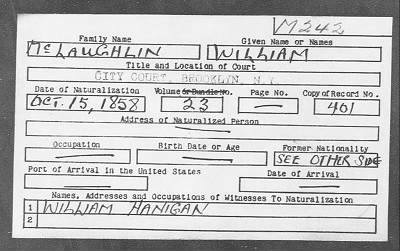 M242
Family Name Given Name or Names
McLAUGHLIN WILLIAM
Title and Location of Court
CITY COURT, BROOKLIN, N.Y.
Date of Naturalization Volume or Bundle No. Page No. Copy of Record No.
OCT. 15, 1858 23 — 401
Address of Naturalized Person
Occupation Birth Date or Age Former Nationality
— — SEE OTHER SIDE
Port of Arrival in the United States Date of Arrival
— —
Names, Addresses and Occupations of Witnesses To Naturalization
1 WILLIAM HANIGAN
2